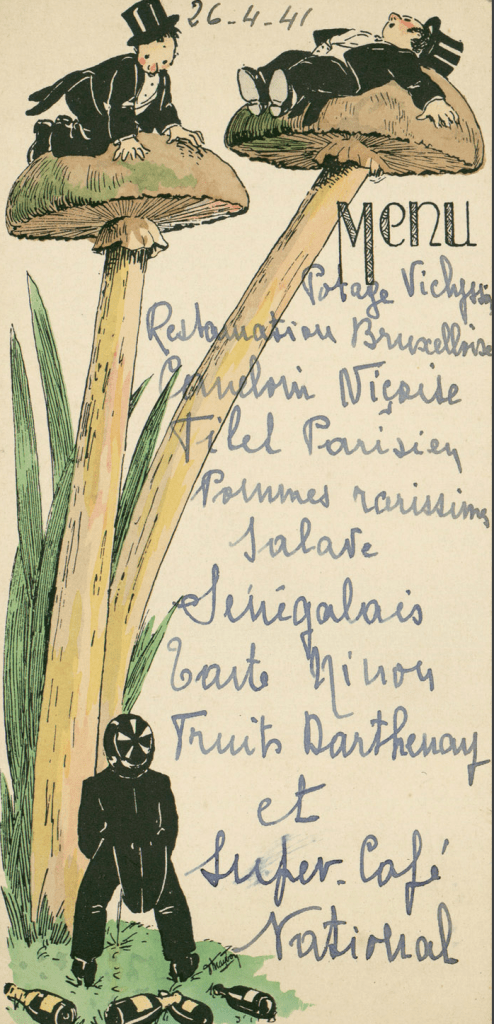 26-4-41
Menu
Potage Vichyssois
Restauration Bruxelloise
Niçoise
Filet Parisien
Pommes rarissimes
Salade
Sénégalais
Tarte Ninon
Fruits Darthenay
et
Super-Café
National